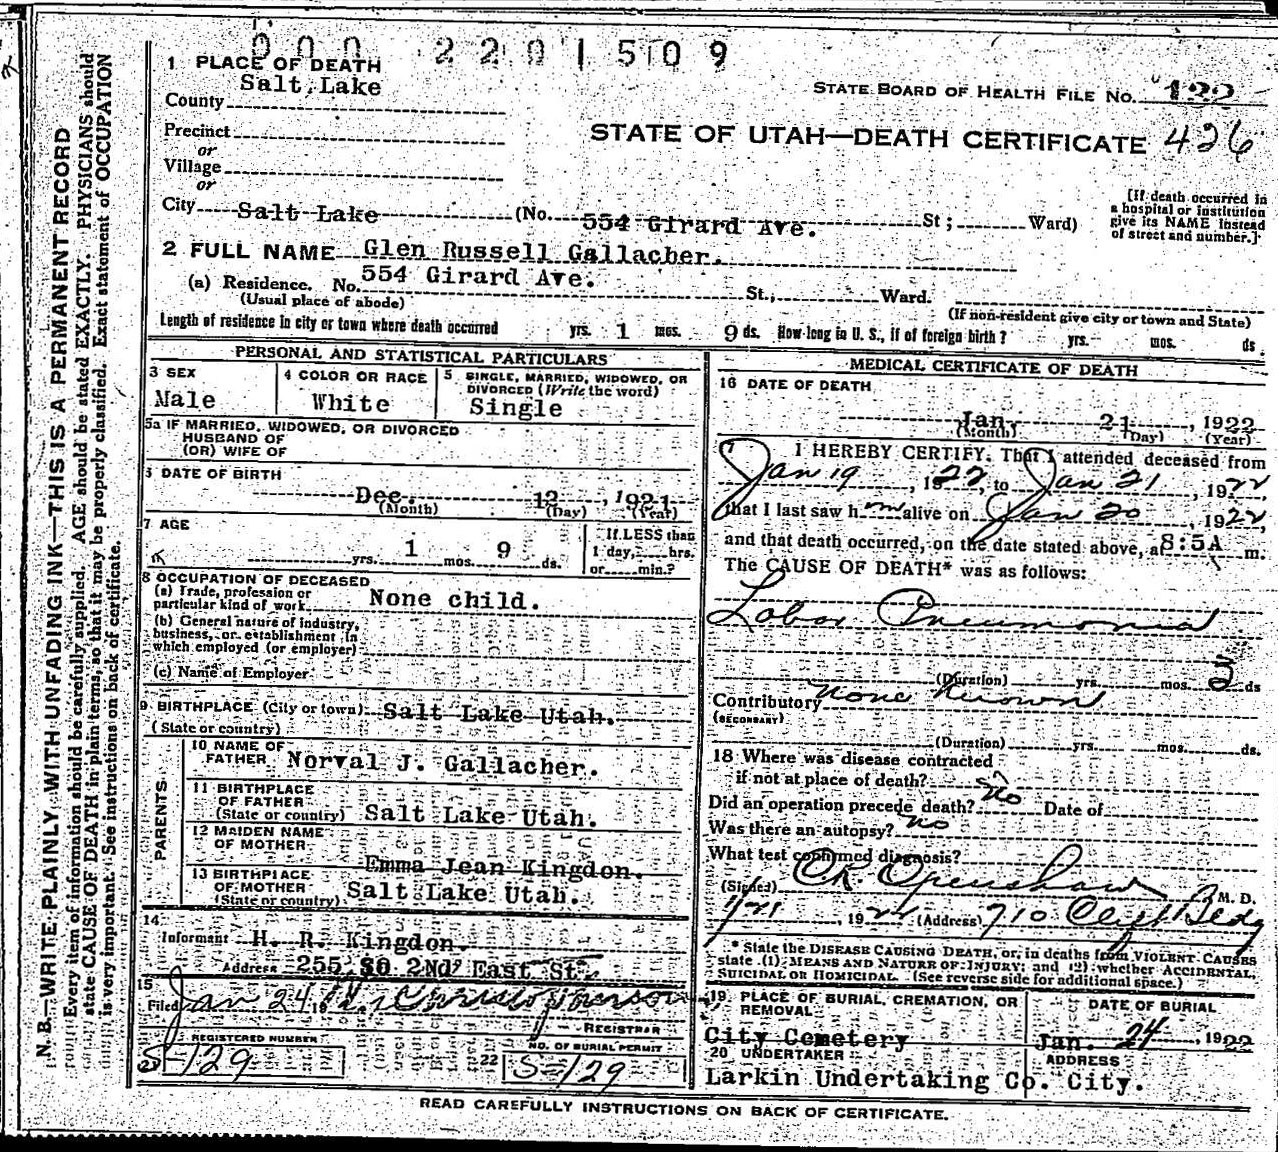 000 2201509
1 PLACE OF DEATH
Salt Lake
County
STATE BOARD OF HEALTH FILE NO. 122
Precinct
or
STATE OF UTAH—DEATH CERTIFICATE 426
Village
or
City Salt Lake (No. 554 Girard Ave. St ; Ward)
[If death occurred in
a hospital or institution
give its NAME instead
of street and number.]
2 FULL NAME Glen Russell Gallacher.
(a) Residence. No. 554 Girard Ave. St., Ward.
(Usual place of abode)
(If non-resident give city or town and State)
Length of residence in city or town where death occurred yrs. 1 mos. 9 ds. How long in U. S., if of foreign birth? yrs. mos. ds.
PERSONAL AND STATISTICAL PARTICULARS
3 SEX
Male
4 COLOR OR RACE
White
5 SINGLE, MARRIED, WIDOWED, OR
DIVORCED (Write the word)
Single
5a IF MARRIED, WIDOWED, OR DIVORCED
HUSBAND OF
(OR) WIFE OF
6 DATE OF BIRTH
Dec. 12, 1921
(Month) (Day) (Year)
7 AGE
yrs. 1 mos. 9 ds.
If LESS than
1 day, hrs.
or min.?
8 OCCUPATION OF DECEASED
(a) Trade, profession or
particular kind of work None child.
(b) General nature of industry,
business, or establishment in
which employed (or employer)
(c) Name of Employer
9 BIRTHPLACE (City or town) Salt Lake Utah.
(State or country)
PARENTS
10 NAME OF
FATHER Norval J. Gallacher.
11 BIRTHPLACE
OF FATHER
(State or country) Salt Lake Utah.
12 MAIDEN NAME
OF MOTHER
Emma Jean Kingdon.
13 BIRTHPLACE
OF MOTHER
(State or country) Salt Lake Utah.
14
Informant H. R. Kingdon.
Address 255 So 2Nd East St.
15
Filed Jan 24 19
REGISTRAR
REGISTERED NUMBER
21 S-129
NO. OF BURIAL PERMIT
22 S-129
MEDICAL CERTIFICATE OF DEATH
16 DATE OF DEATH
Jan. 21, 1922
(Month) (Day) (Year)
17 I HEREBY CERTIFY. That I attended deceased from
Jan 19, 1922, to Jan 21, 1922,
that I last saw h m alive on Jan 20, 1922,
and that death occurred, on the date stated above, at 8:5A m.
The CAUSE OF DEATH* was as follows:
Lobar Pneumonia
(Duration) yrs. mos. 3 ds
Contributory none known
(SECONDARY)
(Duration) yrs. mos. ds.
18 Where was disease contracted
if not at place of death?
Did an operation precede death? No Date of
Was there an autopsy? no
What test confirmed diagnosis?
(Signed) CR Openshaw M. D.
1/21, 1922 (Address) 710 Clift Bldg
* State the DISEASE CAUSING DEATH, or, in deaths from VIOLENT CAUSES
state (1) MEANS AND NATURE OF INJURY; and (2) whether ACCIDENTAL,
SUICIDAL OR HOMICIDAL. (See reverse side for additional space.)
19 PLACE OF BURIAL, CREMATION, OR
REMOVAL
City Cemetery
DATE OF BURIAL
Jan. 24, 1922
20 UNDERTAKER
ADDRESS
Larkin Undertaking Co. City.
READ CAREFULLY INSTRUCTIONS ON BACK OF CERTIFICATE.
N. B.—WRITE PLAINLY WITH UNFADING INK—THIS IS A PERMANENT RECORD
Every item of information should be carefully supplied. AGE should be stated EXACTLY. PHYSICIANS should
state CAUSE OF DEATH in plain terms, so that it may be properly classified. Exact statement of OCCUPATION
is very important. See instructions on back of certificate.